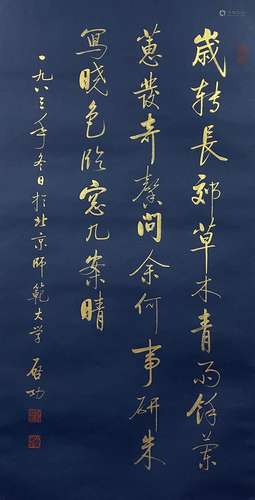 歲转長郊草木青雨餘蘭
蕙發奇馨問余何事研朱
寫曉色臨窗几案晴
一九八三年冬日於北京師範大学 啟功